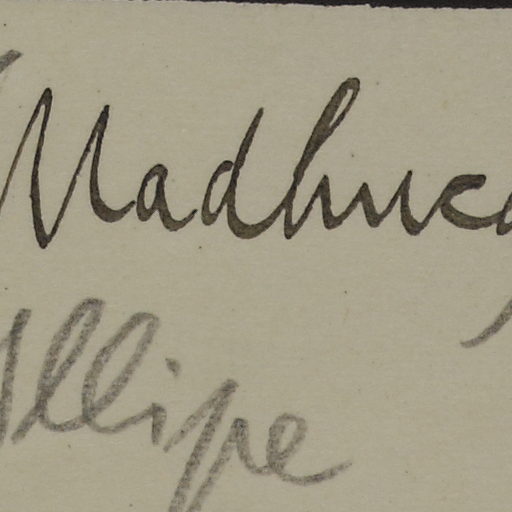 Madhuca
Illipe